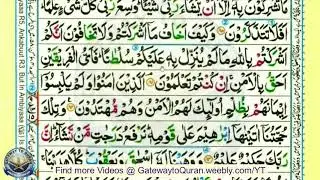 مَا تُشْرِكُوْنَ بِهٖۤ اِلَّاۤ اَنْ يَّشَآءَ رَبِّيْ شَيْـًٔا ؕ وَسِعَ رَبِّيْ كُلَّ شَيْءٍ عِلْمًا ؕ
اَفَلَا تَتَذَكَّرُوْنَ وَكَيْفَ اَخَافُ مَاۤ اَشْرَكْتُمْ وَلَا تَخَافُوْنَ اَنَّكُمْ
اَشْرَكْتُمْ بِاللّٰهِ مَا لَمْ يُنَزِّلْ بِهٖ عَلَيْكُمْ سُلْطٰنًا ؕ فَاَيُّ الْفَرِيْقَيْنِ
اَحَقُّ بِالْاَمْنِ ۚ اِنْ كُنْتُمْ تَعْلَمُوْنَ اَلَّذِيْنَ اٰمَنُوْا وَلَمْ يَلْبِسُوْۤا
اِيْمَانَهُمْ بِظُلْمٍ اُولٰٓئِكَ لَهُمُ الْاَمْنُ وَهُمْ مُّهْتَدُوْنَ وَتِلْكَ
حُجَّتُنَاۤ اٰتَيْنٰهَاۤ اِبْرٰهِيْمَ عَلٰى قَوْمِهٖ ؕ نَرْفَعُ دَرَجٰتٍ مَّنْ نَّشَآءُ ؕ اِنَّ
رَبَّكَ حَكِيْمٌ عَلِيْمٌ وَوَهَبْنَا لَهٗۤ اِسْحٰقَ وَيَعْقُوْبَ ؕ كُلًّا هَدَيْنَا
Find more Videos @ GatewaytoQuran.weebly.com/YT